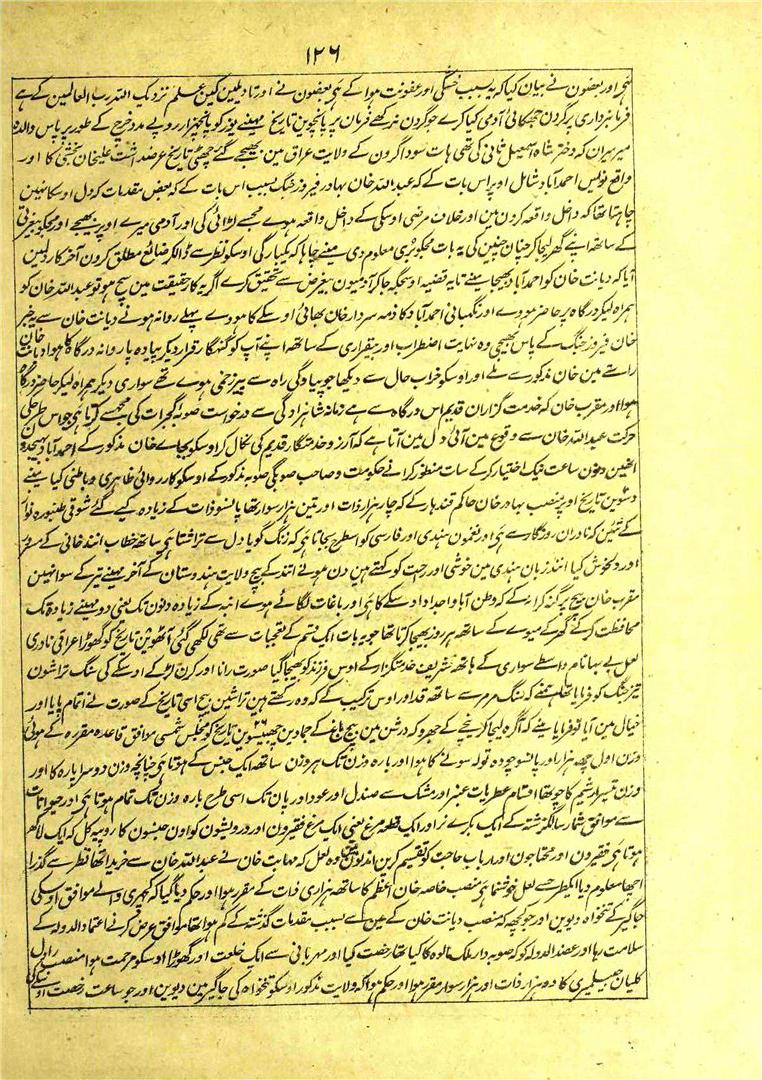 ۱۲۶
ہی اور بعضوں نے بیان کیا کہ بہ سبب خشکی اور عفونت ہوا کے ہی بعضوں نے اور تاویلین کین علم نزدیک اللہ رب العالمین کے ہے
فرمانبرداری پر گردن جھکانی آدمی کیا کرے جو گردن نرکھے فرمان پر پانچوین تاریخ مہینے پور کو پانچہزار روپے مدد خرچ کے طور پر پاس والدہ
میر میران کہ دختر شاہ اسمعیل ثانی کی تھی ہات سوداگرون کے ولایت عراق مین بھیجے گئے چھٹی تاریخ عرضداشت علیخان بخشی کا اور
واقع نویس احمدآباد شامل اوپر اس بات کے کہ عبداللہ خان بہادر فیروز جنگ بسبب اس بات کے کہ بعض مقدمات کو دل اوسکا نہین
چاہتا تھا کہ داخل واقعہ کرون مین اور خلاف مرضی اوسکی کے داخل واقعہ ہوے مجسے لڑائی کی اور آدمی میرے اوپر بھیجے اور مجکو بیعزتی
کے ساتھ اپنے گھر لیجا کر چنان چنین کی یہ بات مجکو بُری معلوم دی مینے چاہا کہ یکبارگی اوسکو نظر سے ڈالکر ضائع مطلق کرون آخر کار دلمین
آیا کہ دیانت خان کو احمدآباد بھیجا مینے تا یہ قضیہ اوسجگہ جا کر آدمیون بیغرض سے تحقیق کرے اگر یہ کار حقیقت مین سچ ہو تو عبداللہ خان کو
ہمراہ لیکر درگاہ پر حاضر ہووے اور نگہبانی احمدآباد کا ذمہ سردار خان بھائی اوسکے کا ہووے پہلے روانہ ہونے دیانت خان سے یہ خبر
خان فیروز جنگ کے پاس بھیجی وہ نہایت اضطراب اور بیقراری کے ساتھ اپنے آپ کو گنہگار قرار دیکر پیادہ پا روانہ درگاہ کا ہوا دیانت خان
راستے مین خان مذکور سے ملے اور اوسکو خراب حال سے دیکھا جو پیادگی راہ سے پیر زخمی ہوے تھے سواری دیکر ہمراہ لیکر حاضر درگاہ
ہوا اور مقرب خان کہ خدمت گزاران قدیم اس درگاہ سے ہے زمانہ شاہزادگی سے درخواست صوبہ گجرات کی مجسے کرتا ہی جو اس طرح کی
حرکت عبداللہ خان سے وقوع مین آئی دل مین آتا ہے کہ آرزو خدمتگار قدیم کی نکال کر اوسکو بجاے خان مذکور کے احمدآباد بھیجدون
انھین دنون ساعت نیک اختیار کر کے سات منظور کرانے حکومت و صاحب صوبگی صوبہ مذکور کے اوسکو کاروائی ظاہری و باطنی کیا مینے
دسوین تاریخ اوپر منصب بہادر خان حاکم قندہار کے کہ چار ہزار ذات اور تین ہزار سوار تھا پانسو ذات کے زیادہ کیے گئے شوقی طنبورہ نواز
کے تئین کہ نادران روزگار سے ہی اور نغمون ہندی اور فارسی کو اسطرح بجاتا ہی کہ زنگ گویا دل سے تراشتا ہی ساتھ خطاب انند خانی کے مسرور
اور دلخوش کیا انند زبان ہندی مین خوشی اور راحت کو کہتے ہین دن ہونے انبہ کے بیچ ولایت ہندوستان کے آخر مہینے تیر کے سوا نہین
مقرب خان بیچ پرگنہ کرانہ کے کہ وطن آبا و اجداد اوسکے کا ہی اور باغات لگائے ہوے انبہ کے زیادہ دنون تک یعنی دو مہینے زیادہ تک
محافظت کرنے گوکے میوے کے ساتھ ہر روز بھیجا کرتا تھا جو یہ بات ایک قسم کے تعجبات سے تھی لکھی گئی آٹھوین تاریخ کو گھوڑا عراقی نادری
لعل بے بہا نام واسطے سواری کے ہاتھ شریف خدمتگزار کے اوس فرزند کو بھیجا گیا صورت رانا اور کرن لڑکے اوسکے کی سنگ تراشون
تیز چنگ کو فرمایا تھا ہمنے کہ سنگ مرمر سے ساتھ قد اور اوس ترکیب کے کہ وہ رکھتے ہین تراشین بیچ اسی تاریخ کے صورت نے اتمام پایا اور
خیال مین آیا تو فرمایا مینے کہ آگرہ لیجا کر نیچے کے جھروکہ درشن مین بیچ باغ کے جمادین چھبیسوین ۲۶ تاریخ کو مجلس شمسی موافق قاعدہ مقررہ کے ہوئی
وزن اول چھہ ہزار اور پانسو چودہ تولہ سونے کا ہوا اور بارہ وزن تک ہر وزن ساتھ ایک جنس کے ہوتا ہی چنانچہ وزن دوسرا پارہ کا اور
وزن تیسرا ریشم کا چوتھا اقسام عطریات عنبر اور مشک سے صندل اور عود اور بان تک اسی طرح بارہ وزن تک تمام ہوتا ہی اور حیوانات
سے موافق شمار سالگزشتہ کے ایک بکرے نر اور ایک قطعہ مرغ یعنی ایک مرغ فقیرون اور درویشون کو اون جنسون کا روپیہ کل کہ ایک لاکھ
ہوتا ہی فقیرون اور محتاجون اور ارباب حاجت کو تقسیم کرین اندنون مین وہ لعل کہ مہابت خان نے عبداللہ خان سے خریدا تھا نظر سے گذرا
اچھا معلوم دیا یکطرح سے لعل خوشنما ہی منصب خاصہ خان اعظم کا ساتھ ہزاری ذات کے مقرر ہوا اور حکم دیا گیا کہ کچہری والے موافق اوسکی
جاگیر کے تنخواہ دیوین اور جو کچھہ کہ منصب دیانت خان کے مین سے بسبب مقدمات گذشتہ کے کم ہوا تھا موافق عرض کرنے اعتماد الدولہ کے
سلامت رہا اور عضد الدولہ کو کہ صوبہ دار ملک مالوہ کا کیا تھا رخصت کیا اور مہربانی سے ایک خلعت اور گھوڑا اوسکو مرحمت ہوا منصب راول
کلیان جیسلمیری کا دو ہزار ذات اور ہزار سوار مقرر ہوا اور حکم ہوا کہ ولایت مذکور اوسکو تنخواہ کی جاگیر مین دیوین اور جو ساعت رخصت اوسکے کی